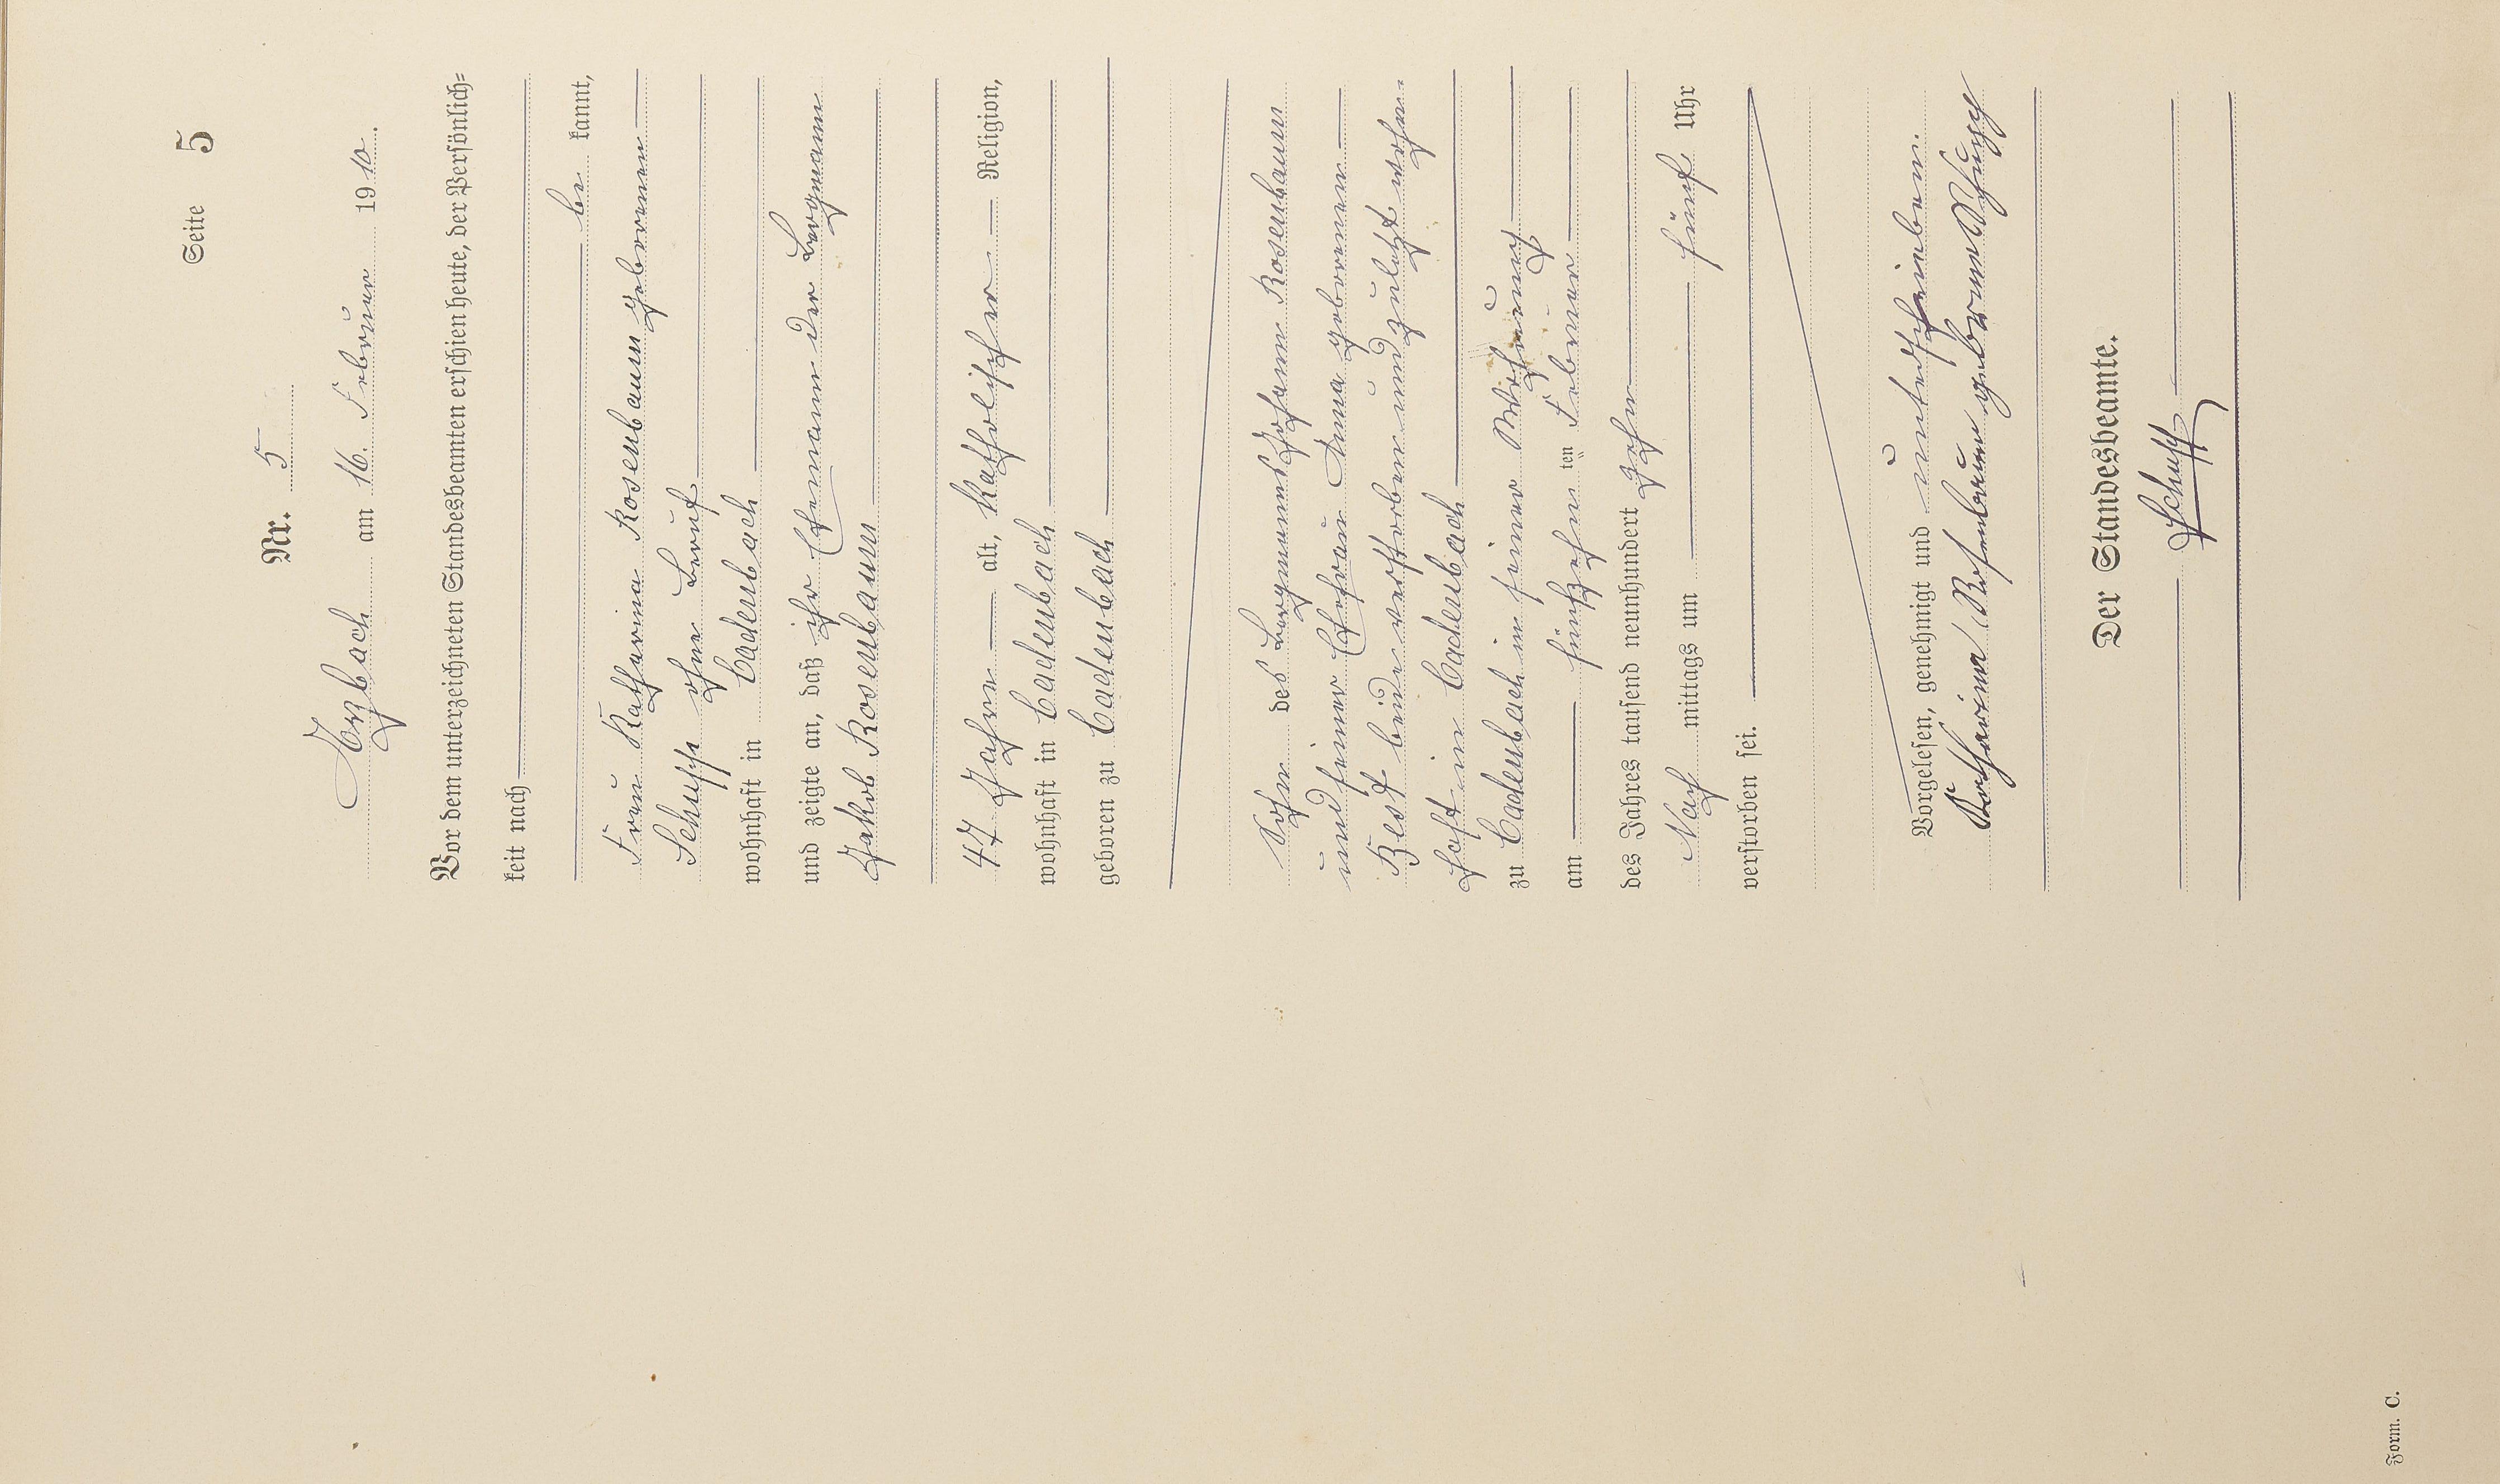 Seite 5
Nr. 5
Arzbach am 16. Februar 1910.
Vor dem unterzeichneten Standesbeamten erschien heute, der Persönlich=
keit nach
be kannt,
Frau Katharina Rosenbaum geborenen
Schupp ohne Beruf
wohnhaft in Cadenbach
und zeigte an, daß ihr Ehemann der Bergmann
Jakob Rosenbaum
47 Jahre alt, Katholischer Religion,
wohnhaft in Cadenbach
geboren zu Cadenbach
Sohn des Bergmanns Johann Rosenbaum
und seiner Ehefrau Anna geborenen
Best beide verstorben und zuletzt wohn-
haft in Cadenbach
zu Cadenbach in seiner Wohnung
am fünfzehn ten Februar
des Jahres tausend neunhundert zehn
Nach mittags um fünf Uhr
verstorben sei.
Vorgelesen, genehmigt und unterschrieben.
Katharina Rosenbaum geborene Schupp
Der Standesbeamte.
Schupp
Form. C.